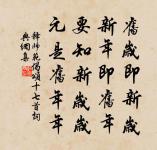 舊歲即新歲
新年即舊年
要知新歲歲
元是舊年年
釋師範偈頌十七首詞
典網集